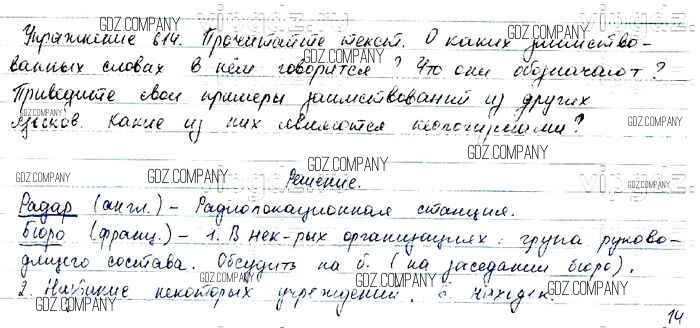 Упражнение 614. Прочитайте текст. О каких заимство-
ванных словах в нём говорится? Что они обозначают?
Приведите свои примеры заимствований из других
языков. Какие из них являются неологизмами?
Решение.
Радар (англ.) – Радиолокационная станция.
Бюро (франц.) – 1. В нек-рых организациях: група руково-
дящего состава. Обсудить на б. (на заседании бюро).
2. Название некоторых учреждений. Б. находок.
14
GDZ.COMPANY